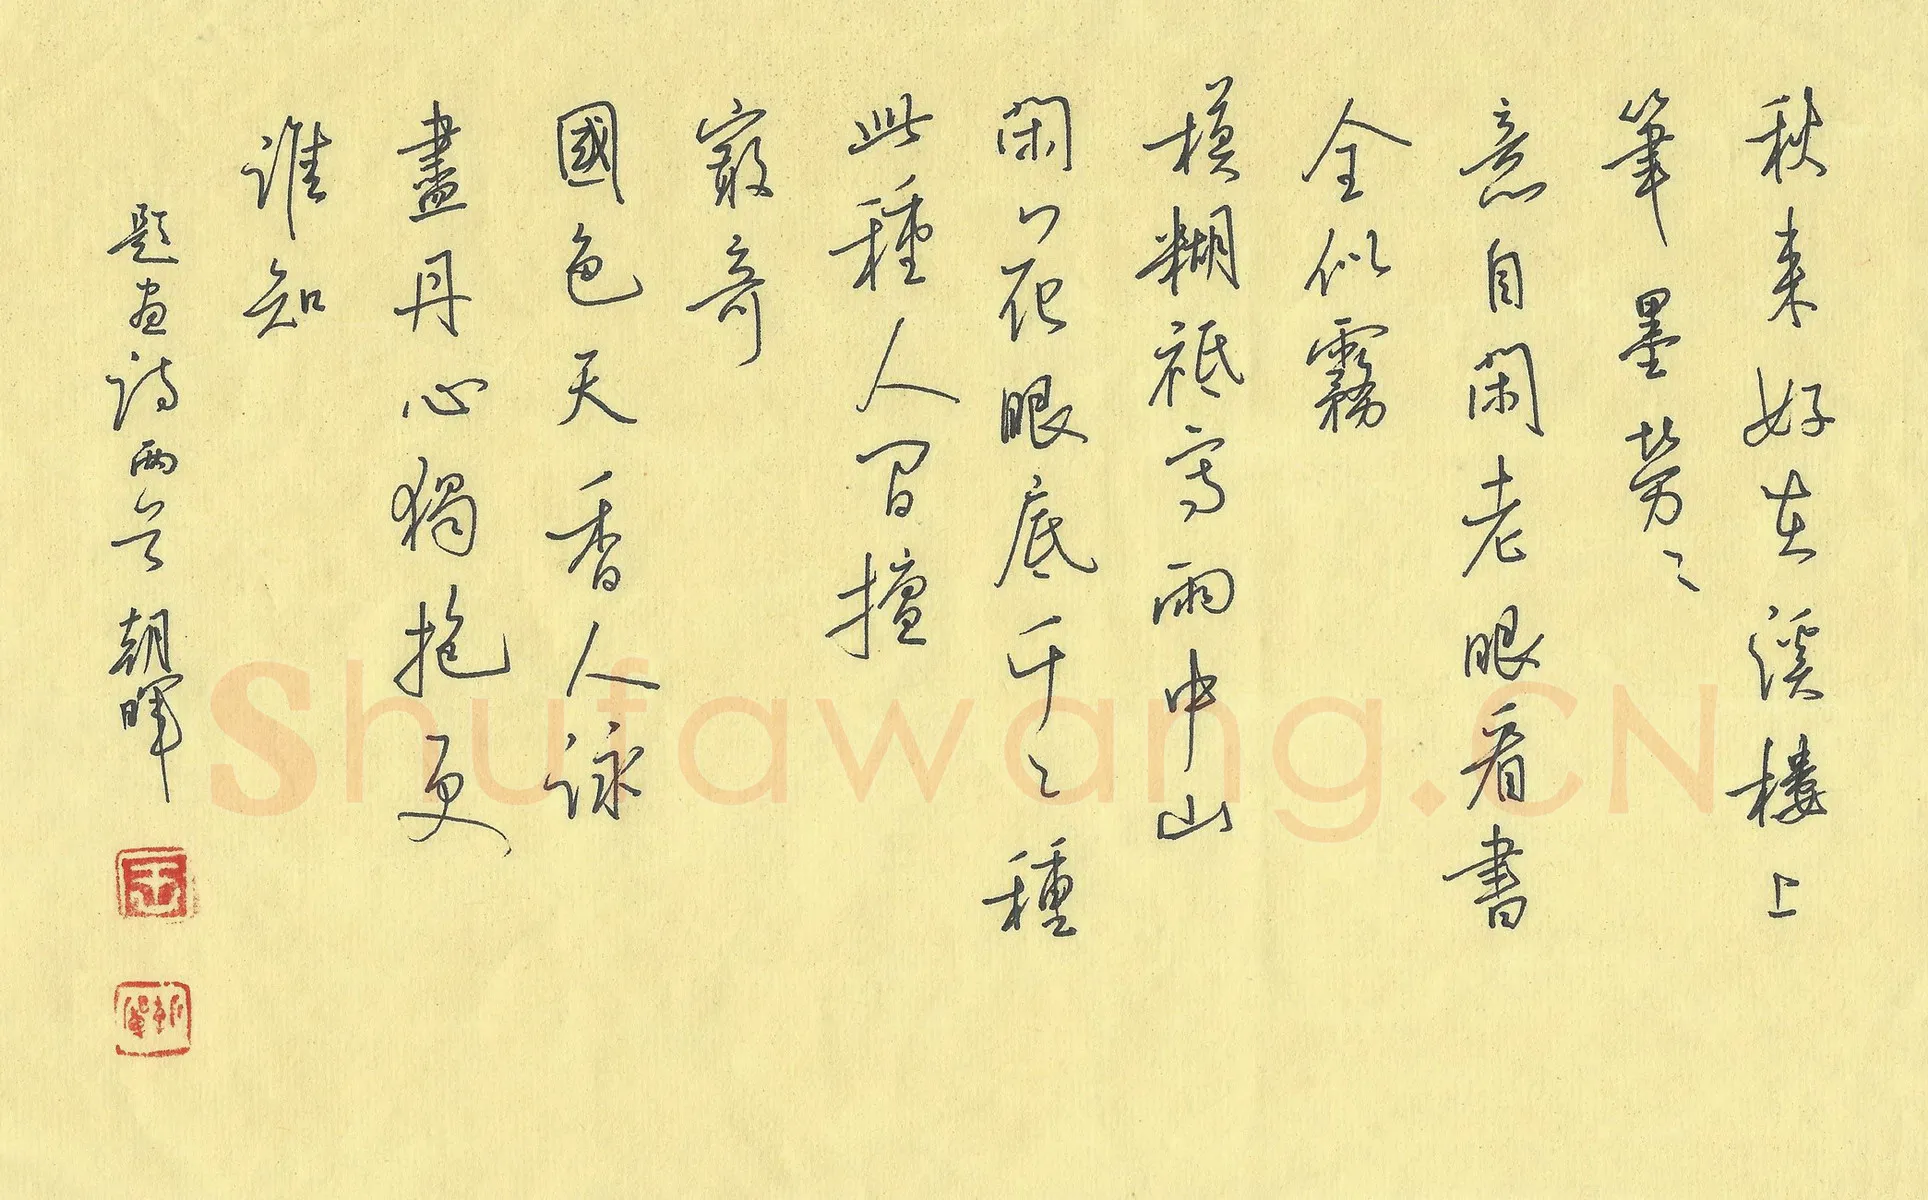 秋来好在溪樓上
筆墨勞々
意自閑老眼看書
全似霧
模糊祇寫雨中山
閑花眼底千々種
此種人間擅
最奇
國色天香人詠
盡丹心獨抱更
誰知
題畫詩兩首 朝暉
Shufawang.CN